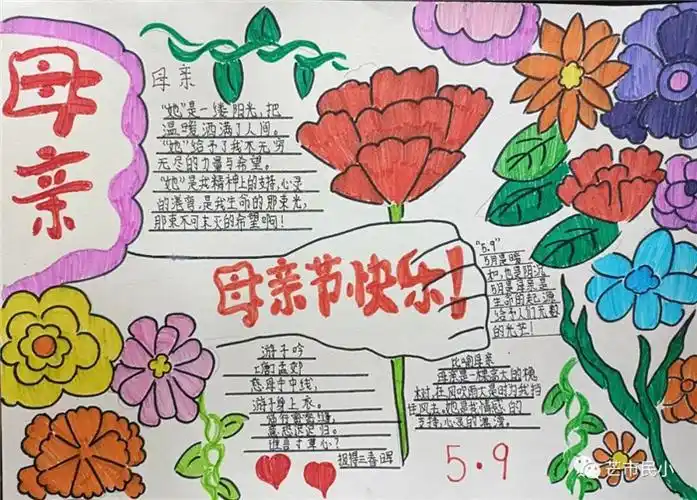 母亲
母亲
"她"是一缕阳光,把
温暖洒满了人间。
"她"给予了我不无穷
无尽的力量与希望。
"她"是我精神上的支持,心灵
的港湾,是我生命的那束光,
那束不可末灭的希望啊!
母亲节快乐!
"5.9"
5月是暖
生命的起源
给予人们无数
的光芒!
游子吟
慈母手中线,
游子身上衣。
临行密密缝,
意恐迟迟归。
谁言寸草心?
报得三春晖
母亲是一棵高大的槐
树,在风吹雨大是时为我挡
住风去,她是我情感的
支持,心灵的港湾。
5.9
芒市民小